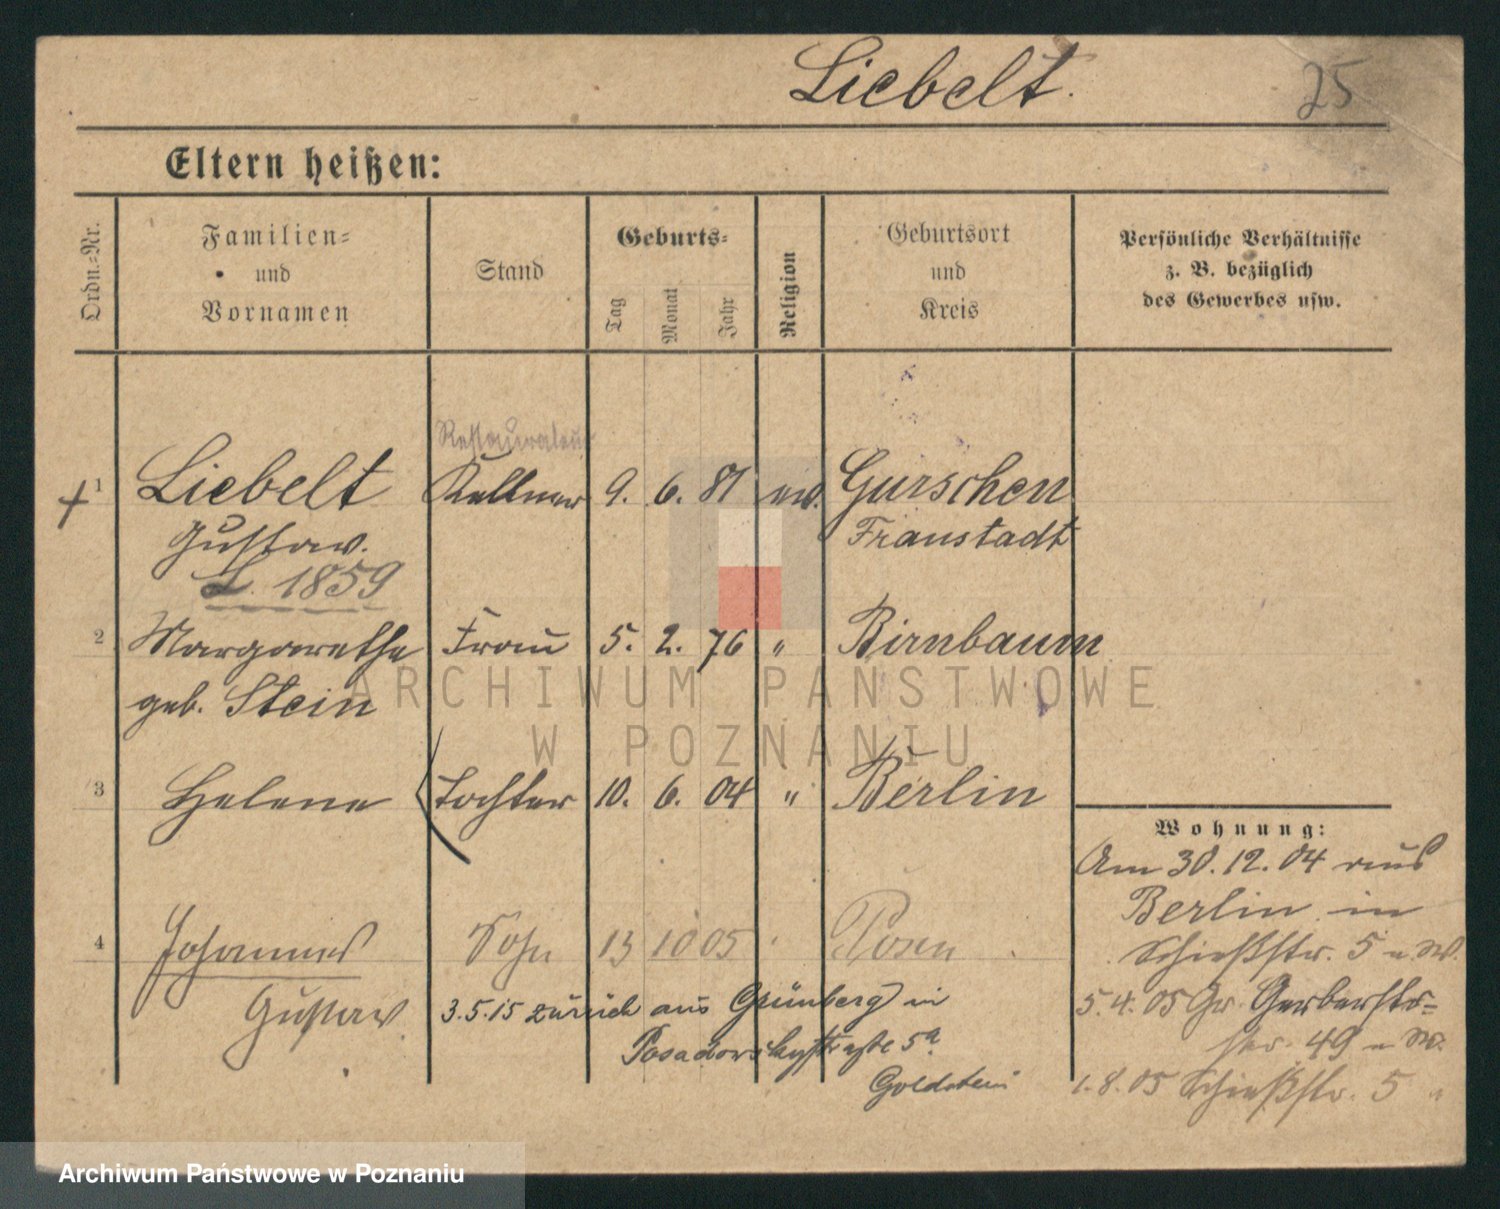 Liebelt.
25
Eltern heißen:
Ordn.-Nr.
Familien-
und
Vornamen
Stand
Geburts-
Tag
Monat
Jahr
Religion
Geburtsort
und
Kreis
Persönliche Verhältnisse
z. B. bezüglich
des Gewerbes usw.
Restaurateur
1 Liebelt Kellner 9. 6. 81 ev. Gurschen
Gustav. Fraustadt
L. 1859
2 Margarethe Frau 5. 2. 76 " Birnbaum
geb. Stein
3 Helene Tochter 10. 6. 04 " Berlin
Wohnung:
Am 30.12.04 aus
Berlin in
Schießstr. 5
4 Johannes Sohn 13 10 05 Posen
Gustav
3.5.15 zurück aus Grünberg in
Posadowskystraße 5a
Goldstein
5.4.05 Gr. Gerberstr-
str. 49
1.8.05 Schießstr. 5 "
ARCHIWUM PAŃSTWOWE
W POZNANIU
Archiwum Państwowe w Poznaniu